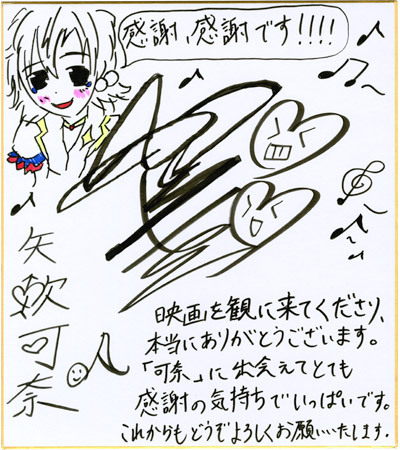 感謝、感謝です!!!!
矢吹可奈
映画を観に来てくださり、
本当にありがとうございます。
「可奈」に出会えてとても
感謝の気持ちでいっぱいです。
これからもどうぞよろしくお願いいたします。